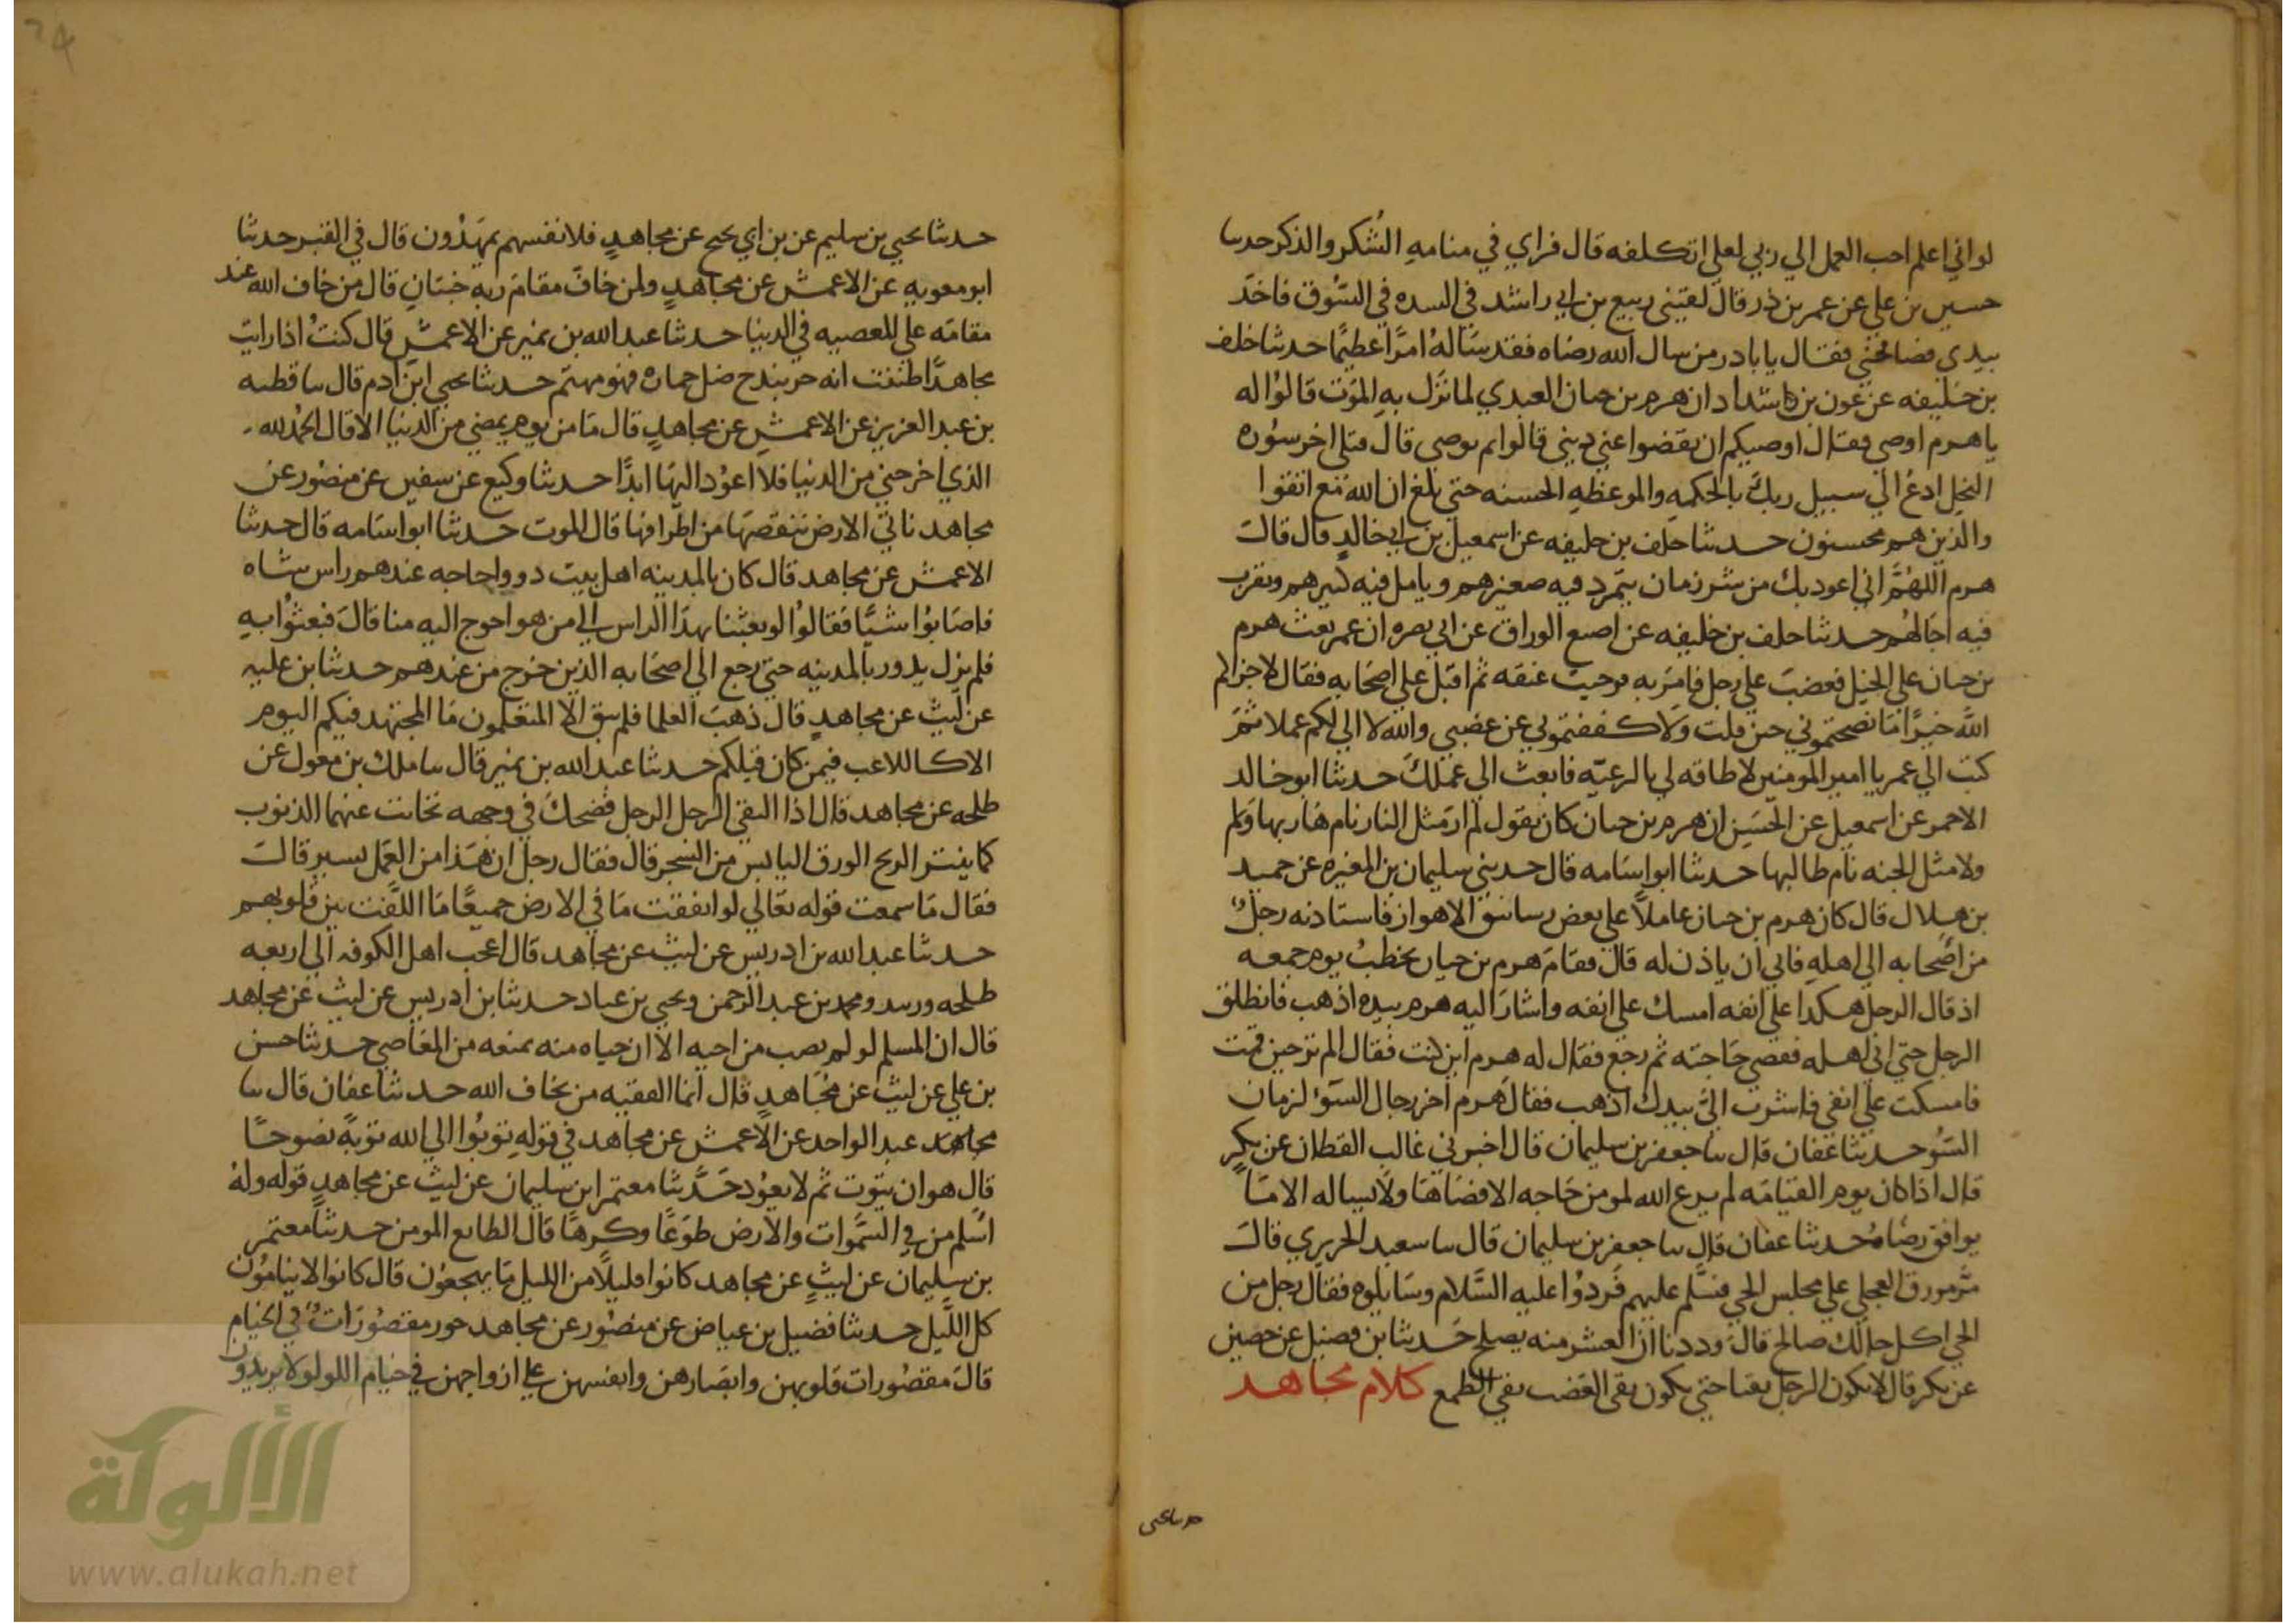 لو اني اعلم احب العمل الي ربي لعلي اتكلفه قال فراي في منامه الشكر والذكر حدسا
حسين بن علي عن عمر بن ذر قال لقيني ربيع بن ابي راشد في السده في السوق فاخذ
بيدي فصافحني فقال يا باذر من سال الله رضاه فقد ساله امرًا عظيمًا حدثنا خلف
بن خليفه عن عون بن شداد ان هرم بن حيان العبدي لما نزل به الموت قالوا له
يا هرم اوصي فقال اوصيكم ان تقضوا عني ديني قالوا بم توصي قال فتلي اخر سوره
النحل ادع الي سبيل ربك بالحكمه والموعظه الحسنه حتي بلغ ان الله مع اتقوا
والذين هم محسنون حدثنا خلف بن خليفه عن اسمعيل بن ابي خالد قال قال
هرم اللهم اني اعوذ بك من شر زمان يتمرد فيه صغيرهم ويامل فيه كبيرهم وتقرب
فيه اجالهم حدثنا خلف بن خليفه عن اصبع الوراق عن ابي نصره ان عمر بعث هرم
بن حيان علي الخيل فغضب علي رجل فامر به فوجيت عنقه ثم اقبل علي اصحابه فقال لا جزاكم
الله خيرًا ما نصحتموني حين قلت ولا كففتموني عن غضبي والله لا الي لكم عملا ثم
كتب الي عمر يا امير المومنين لا طاقه لي بالرعيه فابعث الي عملك حدثنا ابو خالد
الاحمر عن اسمعيل عن الحسن ان هرم بن حيان كان يقول لم ار مثل النار نام هاربها ولم
ولا مثل الجنه نام طالبها حدثنا ابو اسامه قال حدثني سليمان بن المغيره عن حميد
بن هلال قال كان هرم بن حيان عاملاً علي بعض رساتيق الاهواز فاستاذنه رجل
من اصحابه الي اهله فابي ان ياذن له قال فقام هرم بن حيان يخطب يوم جمعه
اذ قال الرجل هكذا علي انفه امسك علي انفه واشار اليه هرم بيده اذهب فانطلق
الرجل حتي اتي اهله فقضي حاجته ثم رجع فقال له هرم اين كنت فقال الم تر حين قمت
فامسكت علي انفي فاشرت الي بيدك اذهب فقال هرم اخر رجال السوء لزمان
السوء حدثنا عفان قال سا جعفر بن سليمان قال اخبرني غالب القطان عن بكر
قال اذا كان يوم القيامه لم يدع الله لمومن حاجه الا قضاها ولا يساله الا ما
يوافق رضاه حدثنا عفان قال سا جعفر بن سليمان قال سا سعيد الجريري قال
مر مورق العجلي علي مجلس الحي فسلم عليهم فردوا عليه السلام وسايلوه فقال رجل من
الحي اكل حالك صالح قال وددنا ان العشر منه يصلح حدثنا بن فضيل عن حصين
عن بكر قال لا يكون الرجل تقيا حتي يكون نقي الغضب نقي الطمع كلام مجاهد
حدسا يحيي
حدثنا يحيي بن سليم عن بن ابي نجيح عن مجاهد فلانفسهم يمهدون قال في القبر حدثنا
ابو معويه عن الاعمش عن مجاهد ولمن خاف مقام ربه جنتان قال من خاف الله عند
مقامه علي المعصيه في الدنيا حدثنا عبد الله بن نمير عن الاعمش قال كنت اذا رايت
مجاهدًا ظننت انه خربندج ضل حماره فهو مهتم حدثنا يحيي ابن ادم قال سا قطبه
بن عبد العزيز عن الاعمش عن مجاهد قال ما من يوم يمضي من الدنيا الا قال الحمد لله
الذي اخرجني من الدنيا فلا اعود اليها ابدًا حدثنا وكيع عن سفين عن منصور عن
مجاهد ناتي الارض ننقصها من اطرافها قال الموت حدثنا ابو اسامه قال حدثنا
الاعمش عن مجاهد قال كان بالمدينه اهل بيت ذوو احاجه عندهم راس شاه
فاصابوا شيًا فقالوا لو بعثنا بهذا الراس الي من هو احوج اليه منا قال فبعثوا به
فلم يزل يدور بالمدينه حتي رجع الي اصحابه الذين خرج من عندهم حدثنا بن عليه
عن ليث عن مجاهد قال ذهب العلما فلم يبق الا المتعلمون ما المجتهد فيكم اليوم
الا كاللاعب فيمن كان قبلكم حدثنا عبد الله بن نمير قال سا ملك بن مغول عن
طلحه عن مجاهد قال اذا التقي الرجل الرجل فضحك في وجهه تحاتت عنهما الذنوب
كما ينثر الريح الورق اليابس من الشجر قال فقال رجل ان هذا من العمل يسير قال
فقال ما سمعت قوله تعالي لو انفقت ما في الارض جميعًا ما اللفت بين قلوبهم
حدثنا عبد الله بن ادريس عن ليث عن مجاهد قال اعجب اهل الكوفه الي اربعه
طلحه وزبيد ومحمد بن عبد الرحمن ويحيي بن عباد حدثنا بن ادريس عن ليث عن مجاهد
قال ان المسلم لو لم يصب من اخيه الا ان حياه منه يمنعه من المعاصي حدثنا حسن
بن علي عن ليث عن مجاهد قال انما الفقيه من يخاف الله حدثنا عفان قال سا
مجاهد عبد الواحد عن الاعمش عن مجاهد في قوله توبوا الي الله توبة نصوحًا
قال هو ان يتوب ثم لا يعود حدثنا معتمر ابن سليمان عن ليث عن مجاهد قوله وله
اسلم من في السموات والارض طوعًا وكرهًا قال الطايع المومن حدثنا معتمر
بن سليمان عن ليث عن مجاهد كانوا قليلًا من الليل ما يهجعون قال كانوا لا ينامون
كل الليل حدثنا فضيل بن عياض عن منصور عن مجاهد حور مقصورات في الخيام
قال مقصورات قلوبهن وابصارهن وانفسهن علي ازواجهن في خيام اللولو لا يريدون
الألوكة
www.alukah.net